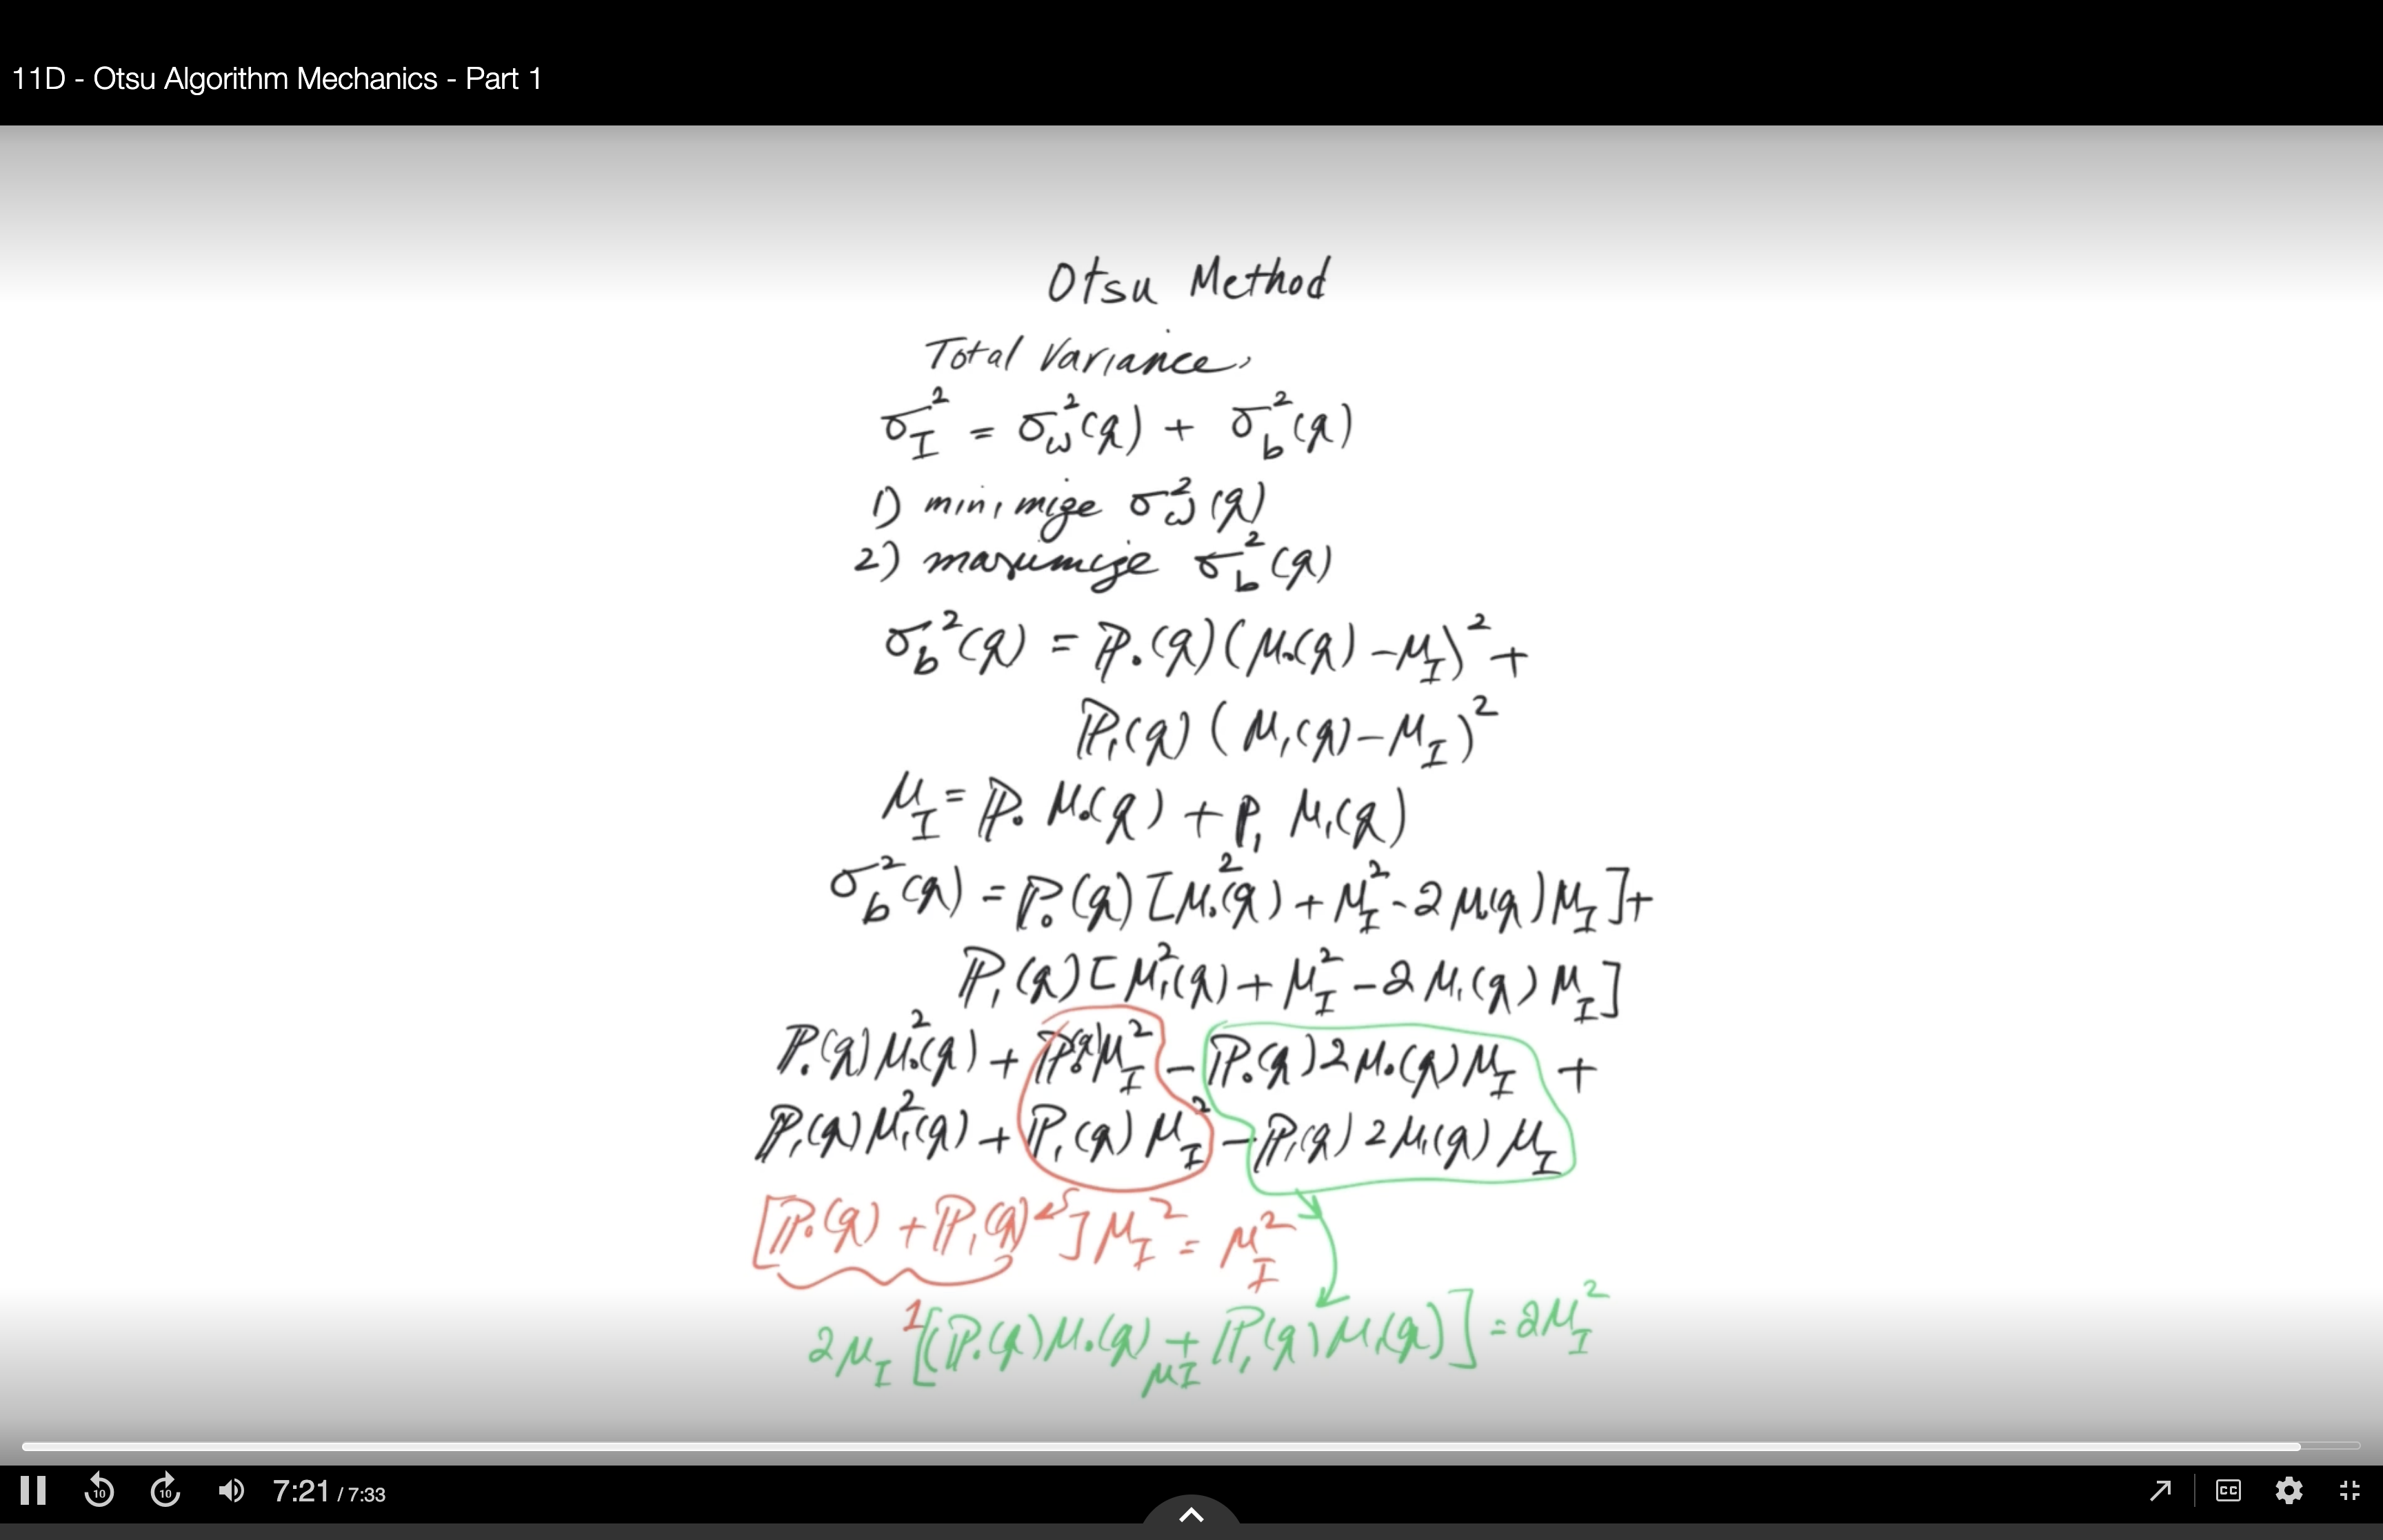 11D - Otsu Algorithm Mechanics - Part 1
Otsu Method
Total Variance,
σ_I² = σ_ω²(q) + σ_b²(q)
1) minimize σ_ω²(q)
2) maximize σ_b²(q)
σ_b²(q) = P₀(q)(μ₀(q) - μ_I)² +
P₁(q)(μ₁(q) - μ_I)²
μ_I = P₀ μ₀(q) + P₁ μ₁(q)
σ_b²(q) = P₀(q)[μ₀²(q) + μ_I² - 2μ₀(q)μ_I] +
P₁(q)[μ₁²(q) + μ_I² - 2μ₁(q)μ_I]
P₀(q)μ₀²(q) + P₀(q)μ_I² - P₀(q)2μ₀(q)μ_I +
P₁(q)μ₁²(q) + P₁(q)μ_I² - P₁(q)2μ₁(q)μ_I
[P₀(q) + P₁(q)]μ_I² = μ_I²
1
2μ_I[(P₀(q)μ₀(q) + P₁(q)μ₁(q)] = 2μ_I²
μ_I
10
10
7:21 / 7:33
CC